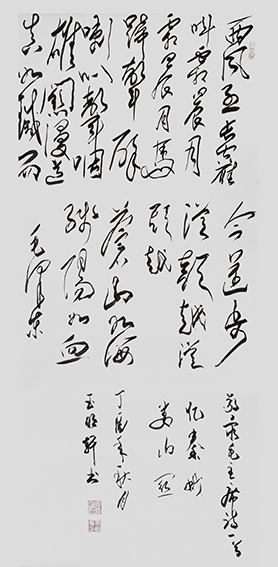 西风烈长空雁
叫霜晨月
霜晨月马
蹄声碎
喇叭声咽
雄关漫道
真如铁而
今迈步
从头越从
头越
苍山如海
残阳如血
毛泽东
敬录毛主席诗一首
忆秦娥
娄山关
丁酉年秋月
轩书